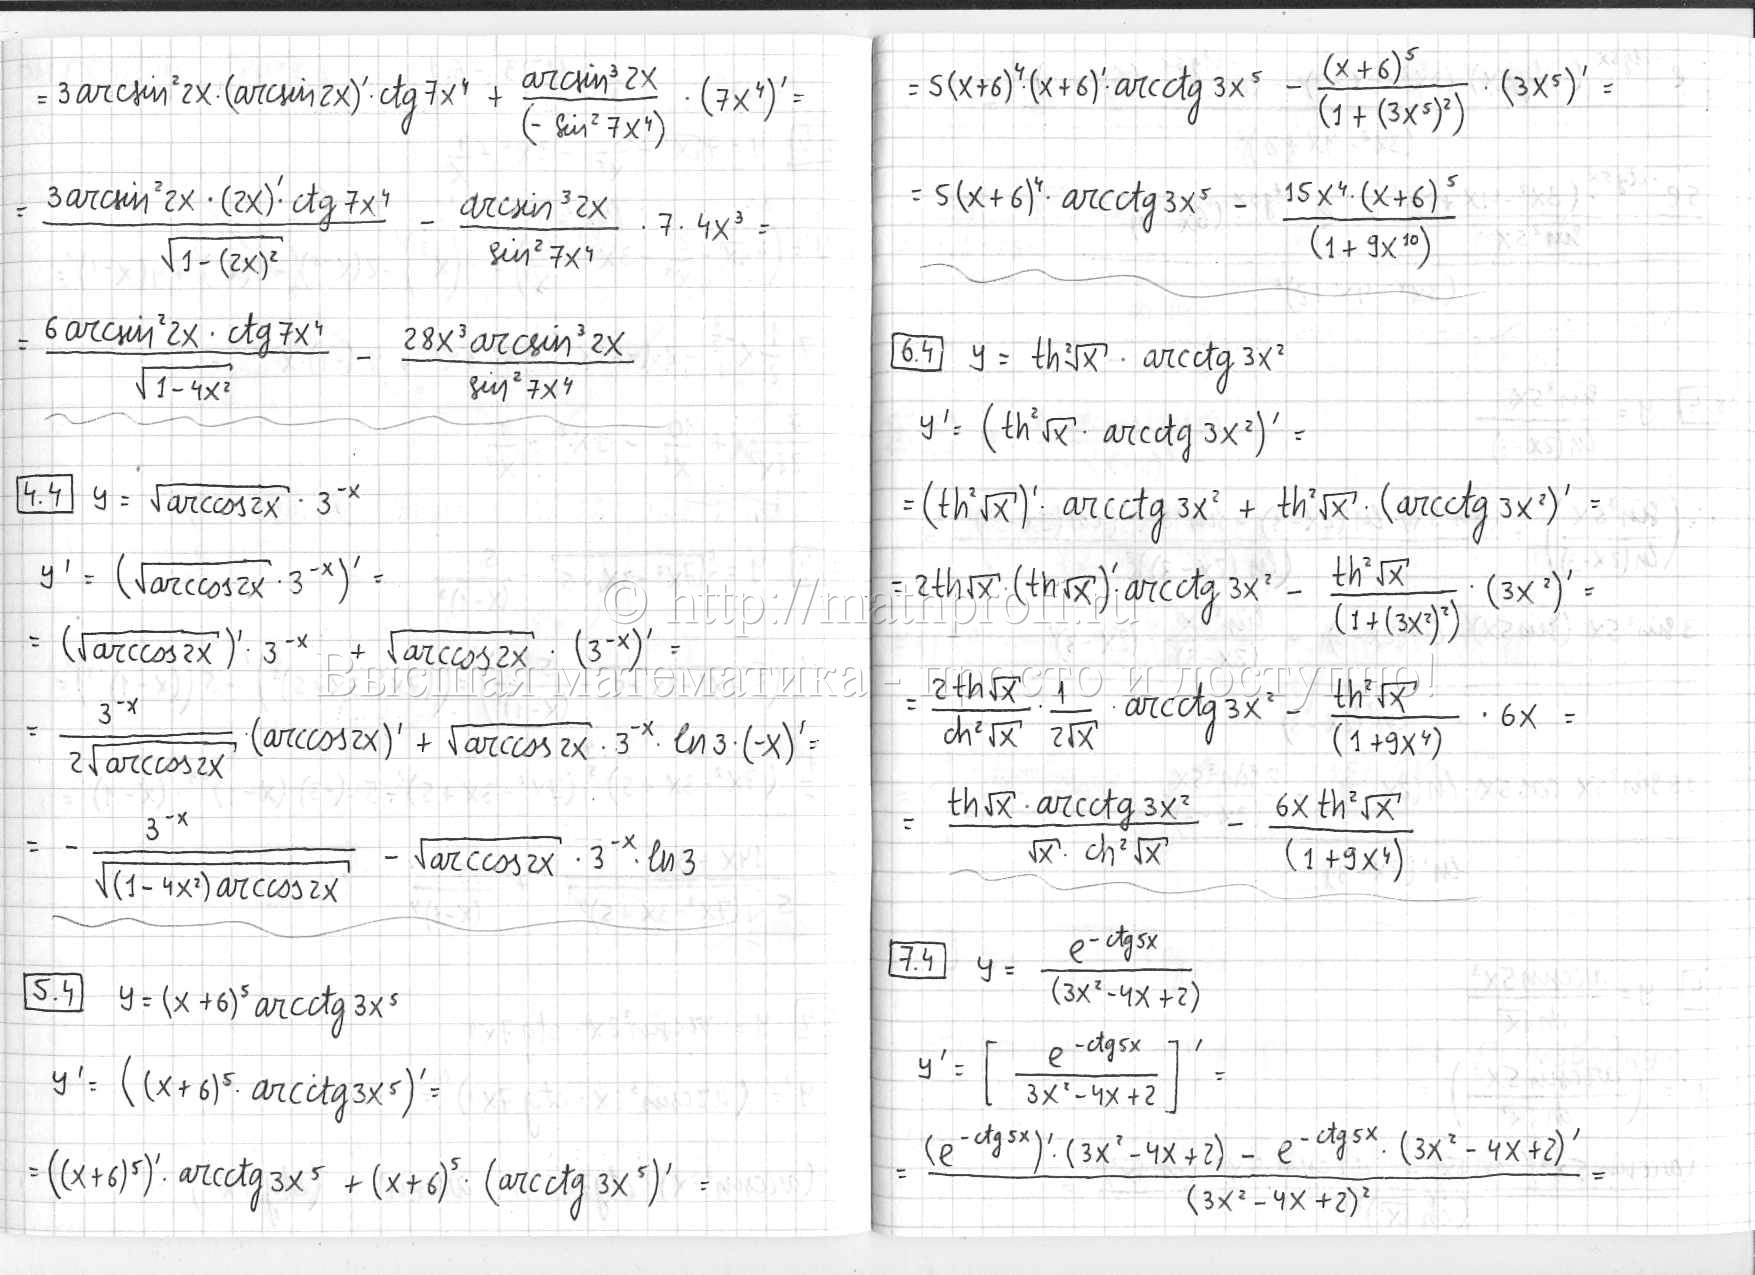 = 3 arcsin² 2x · (arcsin 2x)' · ctg 7x⁴ + arcsin³ 2x / (- sin² 7x⁴) · (7x⁴)' =
= 3 arcsin² 2x · (2x)' · ctg 7x⁴ / √(1 - (2x)²) - arcsin³ 2x / sin² 7x⁴ · 7 · 4x³ =
= 6 arcsin² 2x · ctg 7x⁴ / √(1 - 4x²) - 28x³ arcsin³ 2x / sin² 7x⁴
4.4 y = √(arccos 2x) · 3^(-x)
y' = (√(arccos 2x) · 3^(-x))' =
= (√(arccos 2x))' · 3^(-x) + √(arccos 2x) · (3^(-x))' =
= 3^(-x) / (2√(arccos 2x)) · (arccos 2x)' + √(arccos 2x) · 3^(-x) · ln 3 · (-x)' =
= - 3^(-x) / √((1 - 4x²) arccos 2x) - √(arccos 2x) · 3^(-x) · ln 3
5.4 y = (x + 6)⁵ arcctg 3x⁵
y' = ((x + 6)⁵ · arcctg 3x⁵)' =
= ((x + 6)⁵)' · arcctg 3x⁵ + (x + 6)⁵ · (arcctg 3x⁵)' =
= 5(x + 6)⁴ · (x + 6)' · arcctg 3x⁵ - (x + 6)⁵ / (1 + (3x⁵)²) · (3x⁵)' =
= 5(x + 6)⁴ · arcctg 3x⁵ - 15x⁴ · (x + 6)⁵ / (1 + 9x¹⁰)
6.4 y = th² √x · arcctg 3x²
y' = (th² √x · arcctg 3x²)' =
= (th² √x)' · arcctg 3x² + th² √x · (arcctg 3x²)' =
= 2 th √x · (th √x)' · arcctg 3x² - th² √x / (1 + (3x²)²) · (3x²)' =
= 2 th √x / ch² √x · 1 / 2√x · arcctg 3x² - th² √x / (1 + 9x⁴) · 6x =
= th √x · arcctg 3x² / (√x · ch² √x) - 6x th² √x / (1 + 9x⁴)
7.4 y = e^(-ctg 5x) / (3x² - 4x + 2)
y' = [ e^(-ctg 5x) / 3x² - 4x + 2 ]' =
= (e^(-ctg 5x))' · (3x² - 4x + 2) - e^(-ctg 5x) · (3x² - 4x + 2)' / (3x² - 4x + 2)² =
© http://mathprofi.ru
Высшая математика - просто и доступно!